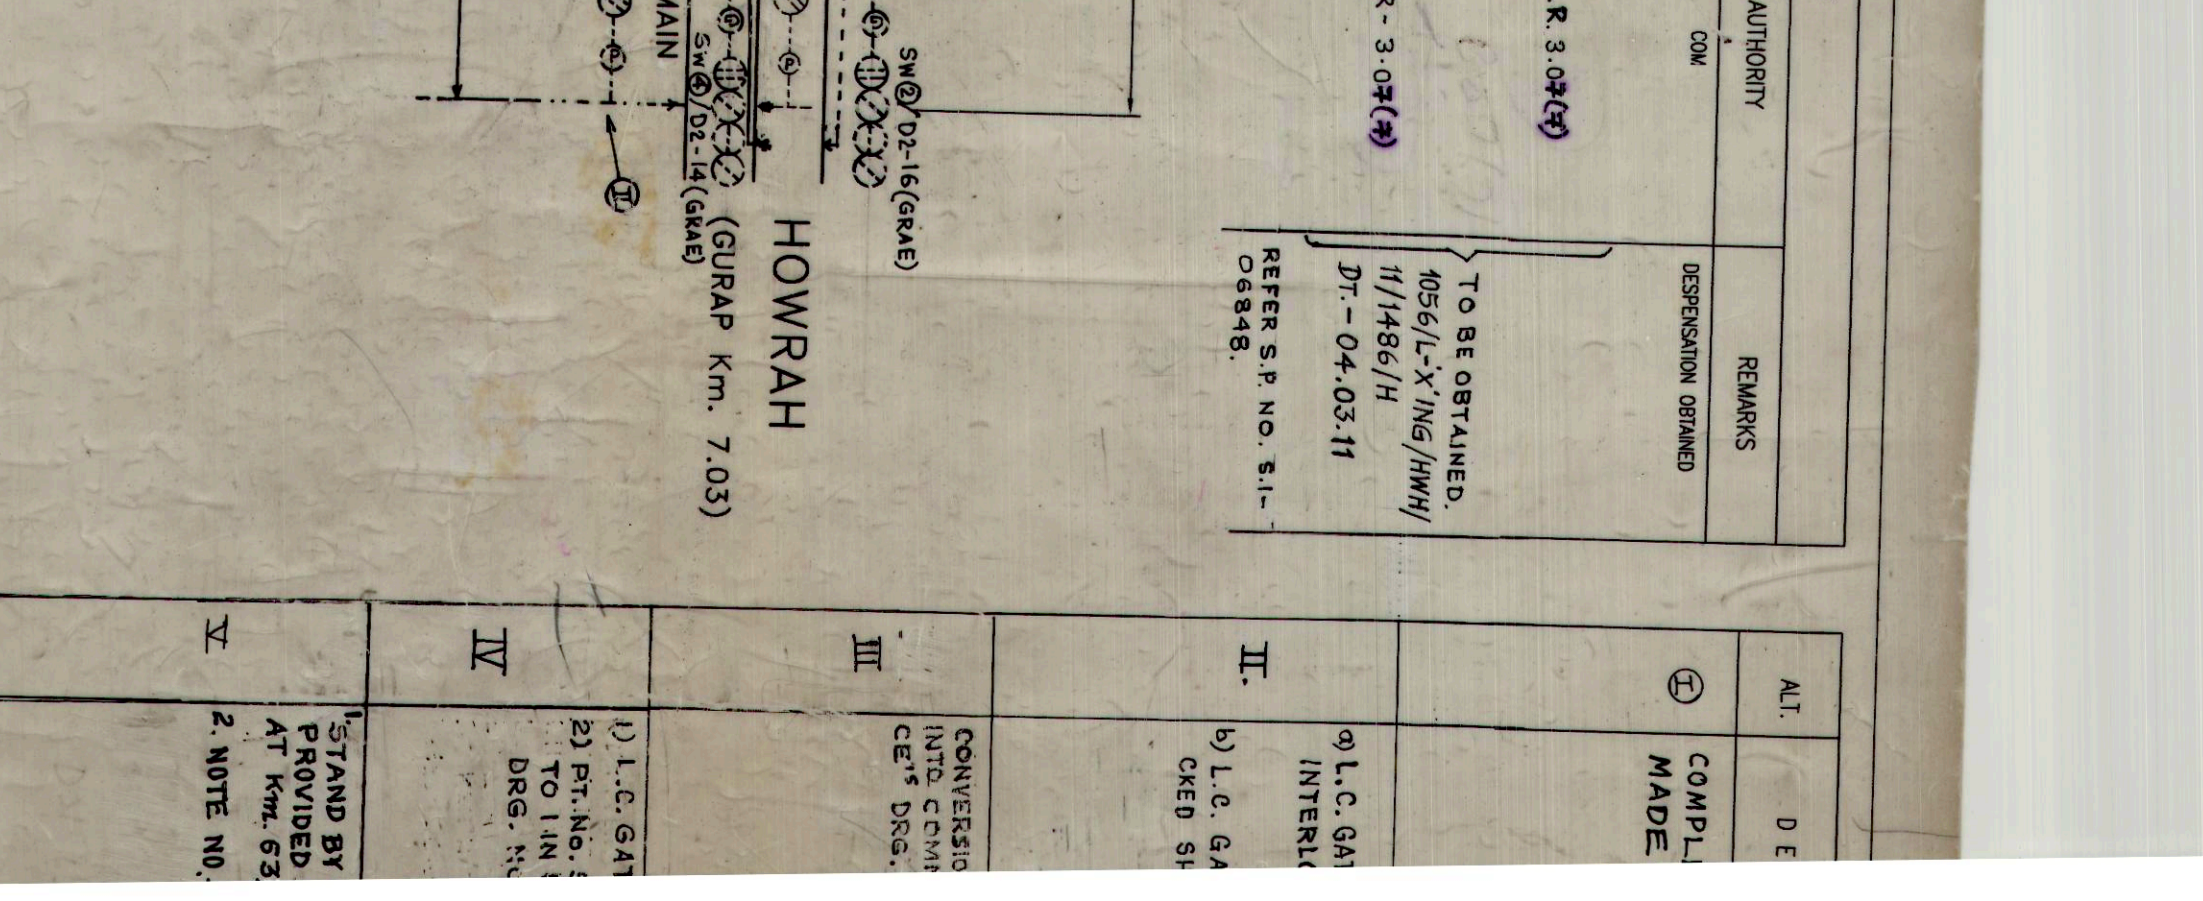 AUTHORITY
REMARKS
COM
DESPENSATION OBTAINED
.R. 3.07(7)
R-3.07(7)
TO BE OBTAINED.
1056/L-'X'ING/HWH/
11/1486/H
DT.-04.03.11
REFER S.P. NO. S.I-
06848.
SW②/D2-16(GRAE)
HOWRAH
(GURAP Km. 7.03)
SW④/D2-14(GRAE)
MAIN
II
ALT.
D E
I
COMPL
MADE
II.
a) L.C. GAT
INTERL
b) L.C. GA
CKED SH
III
CONVERSIO
INTO COM
CE'S DRG.
IV
1) L.C. GAT
2) PT. No.
TO 1 IN
DRG. No
V
1. STAND BY
PROVIDED
AT Km. 63
2. NOTE NO.